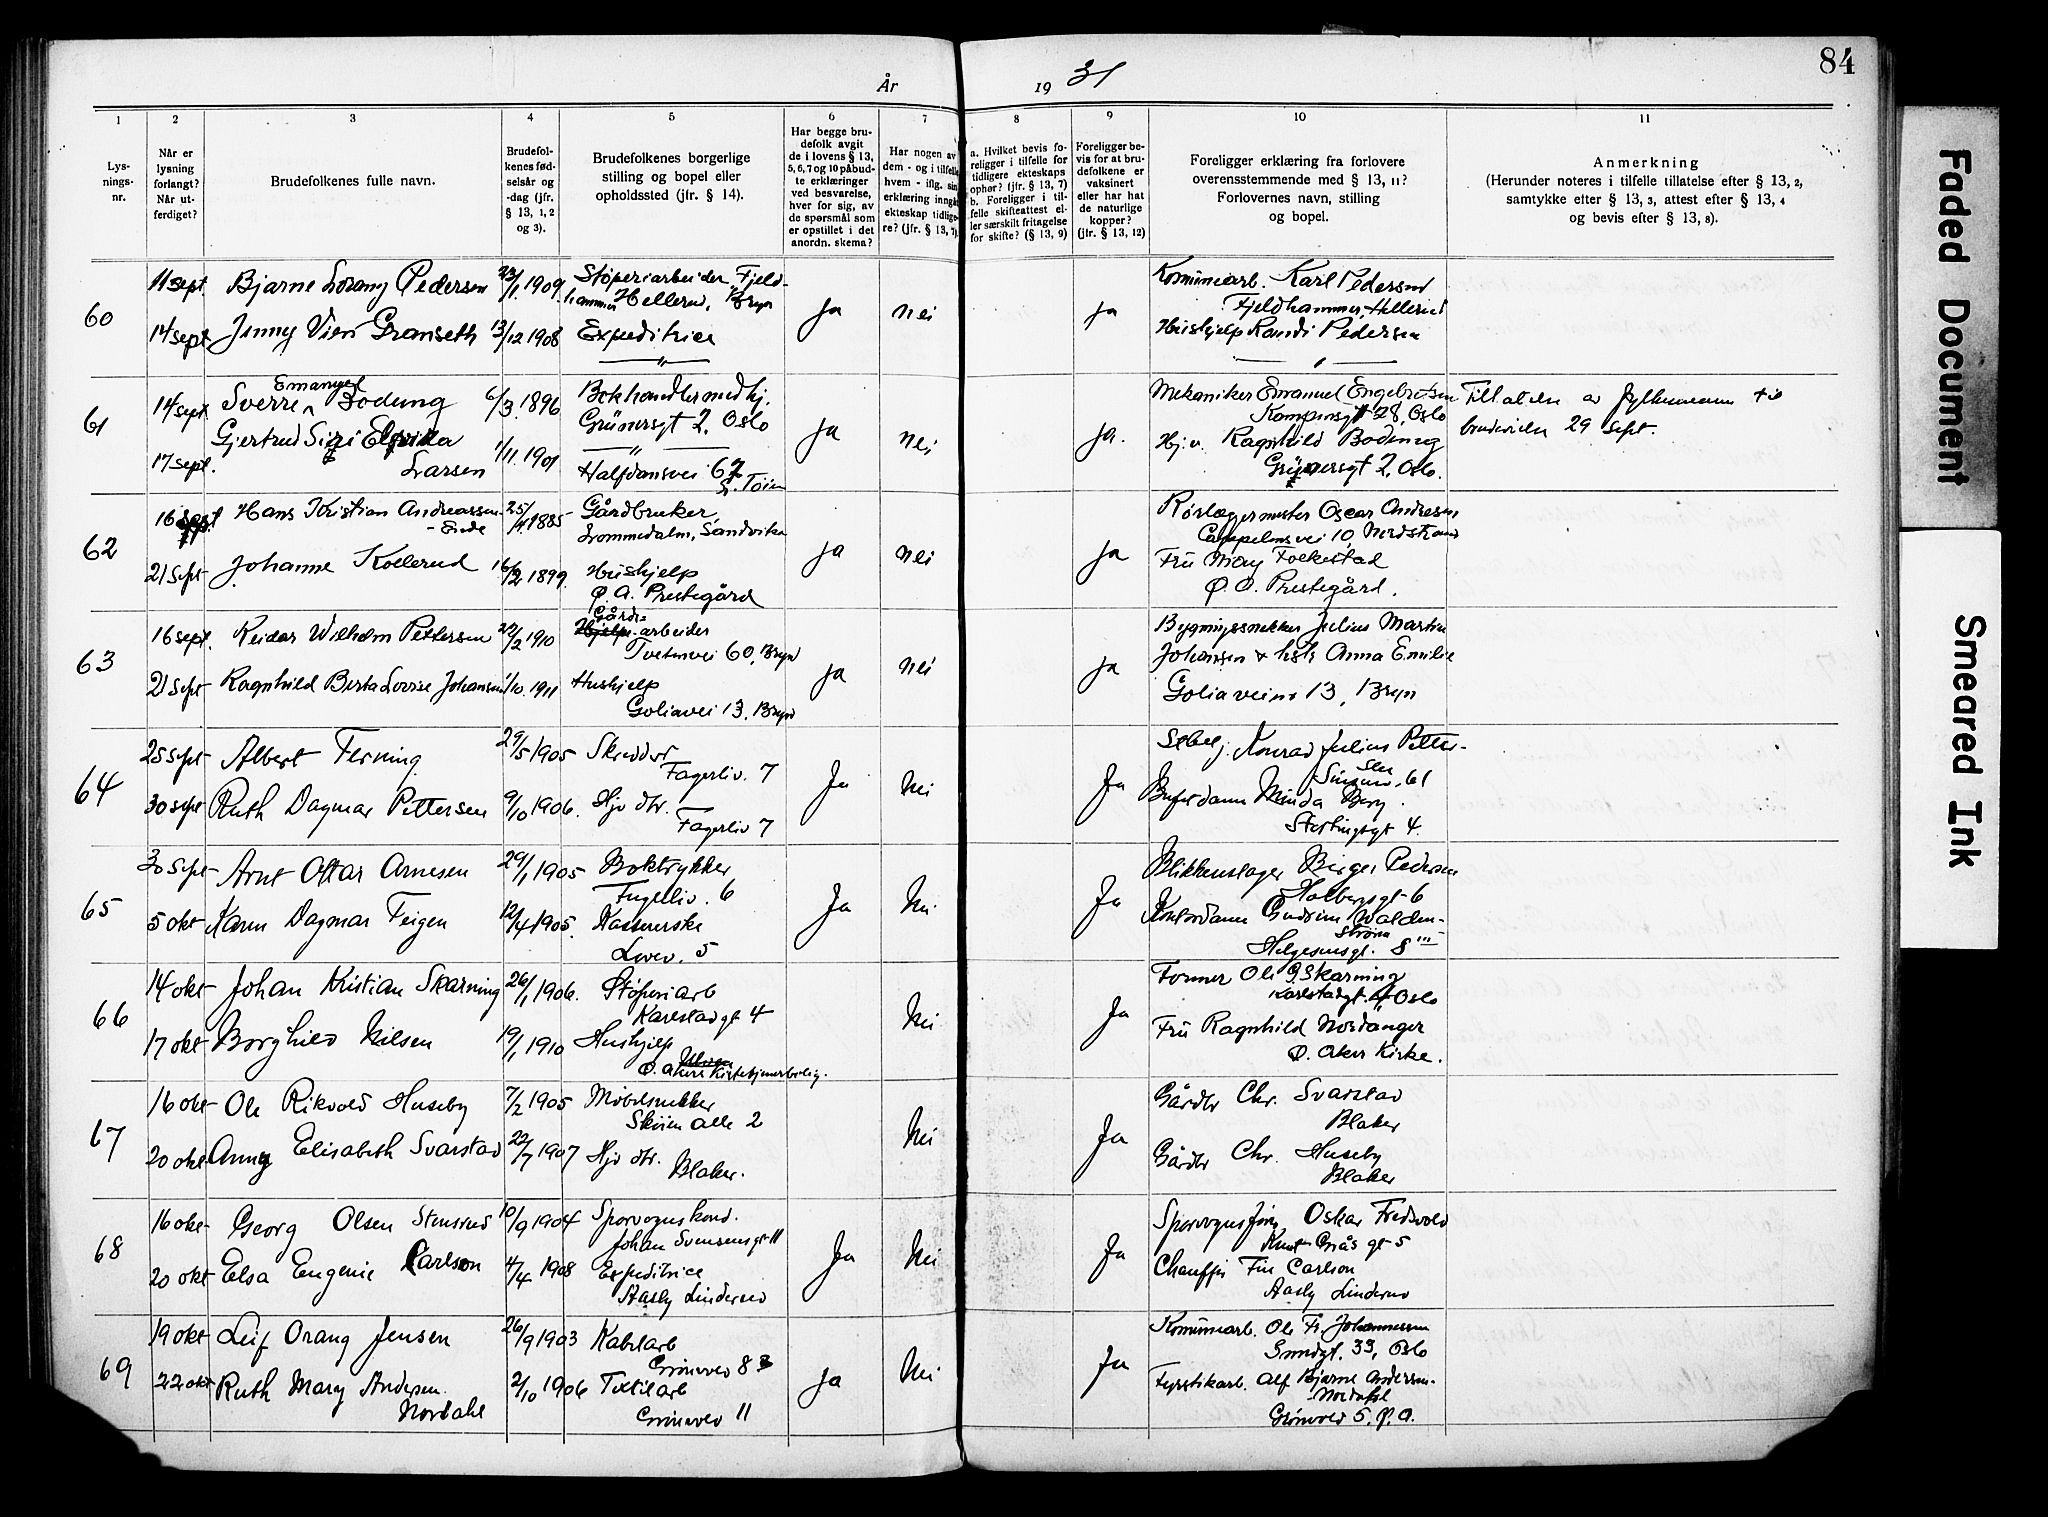 84
År 1931
1 2 3 4 5 6 7 8 9 10 11
Lys-
nings-
nr.
Når er
lysning
forlangt?
Når ut-
ferdiget?
Brudefolkenes fulle navn.
Brudefol-
kenes fød-
selsår og
-dag (jfr.
§ 13, 1, 2
og 3).
Brudefolkenes borgerlige
stilling og bopel eller
opholdssted (jfr. § 14).
Har begge bru-
defolk avgit
de i lovens § 13,
5, 6, 7 og 10 påbud-
te erklæringer
ved besvarelse,
hver for sig, av
de spørsmål som
er opstillet i det
anordn. skema?
Har nogen av
dem - og i tilfelle
hvem - iflg. sin
erklæring inngåt
ekteskap tidlige-
re? (jfr. § 13, 7).
a. Hvilket bevis fo-
religger i tilfelle for
tidligere ekteskaps
ophør? (jfr. § 13, 7)
b. Foreligger i til-
felle skifteattest el-
ler særskilt fritagelse
for skifte? (§ 13, 9)
Foreligger be-
vis for at bru-
defolkene er
vaksinert
eller har hat
de naturlige
kopper?
(jfr. § 13, 12)
Foreligger erklæring fra forlovere
overensstemmende med § 13, 11?
Forlovernes navn, stilling
og bopel.
Anmerkning
(Herunder noteres i tilfelle tillatelse efter § 13, 2,
samtykke efter § 13, 3, attest efter § 13, 4
og bevis efter § 13, 8).
60
11 sept. Bjarne Pedersen 23/1 1909 Støperiarbeider, Fjeld-
hammer Hellerud, Bryn
ja nei ja
Kommunearb. Karl Pedersen
Fjeldhammer, Hellerud
14 sept. Jenny Granseth 13/12 1908 Expeditrice
—"—
Hushjelp Randi Pedersen
—"—
61
14 sept. Sverre Emanuel Bodung 6/3 1896 Bokhandlermedhj.
Grünersgt 2, Oslo
ja nei ja.
Mekaniker Emanuel Engebretsen
Kampensgt 28, Oslo
Tillatelse av fylkesmannen til
17 sept. Gjertrud Siri
Larsen 1/11 1901 —"—
Halfdansvei 67
Hj.v. Ragnhild Bodung
Grünersgt 2, Oslo.
29 sept.
62
16 sept Hans Kristian Andreassen-
25/4 1885 Gårdbruker,
Lommedalen, Sandvika
ja nei ja
Rørlæggermester Oscar Andresen
Cappelensvei 10, Nordstrand
21 sept Johanne Kollerud 16/2 1899. Hushjelp
Ø. A. Prestegård
Fru May Folkestad
Ø. A. Prestegård.
63
16 sept. Reidar Wilhelm Pettersen 22/2 1910 Gårds-
arbeider
Tvetenvei 60, Bryn
ja nei ja
Bygningssnekker Julius Martin
Johansen & hstr. Anna Emilie
21 sept Ragnhild Berta Lovise Johansen 1/10 1911 Hushjelp
Goliavei 13, Bryn
Goliaveien 13, Bryn
64
25 sept Albert Ferning 29/5 1905 Skredder
Fagerliv. 7
Ja Nei Ja
Konrad Julius Petter-
sen
61
30 sept Ruth Dagmar Pettersen 9/10 1906. Hjv dtr.
Fagerliv 7
Minda Berg.
4.
65
30 sept Arnt Ottar Arnesen 29/1 1905 Boktrykker
6
Ja Nei Ja
Blikkenslager Birger Pedersen
Holbergsgt 6
5 okt Karen Dagmar Teigen 12/4 1905. Kassererske
5
Kontordame Gudrun Walden-
strøm
Helgesensgt. 8 III
66
14 okt Johan Kristian Skarning 26/1 1906. Støperiarb
Karlstadgt 4
Nei Ja
Former Ole G Skarning
Karlstadgt. 4 Oslo
17 okt Borghild Nilsen 19/1 1910 Hushjelp
Ø. Aker Kirketjenerbolig.
Fru Ragnhild Nordanger
Ø. Aker Kirke.
67
16 okt Ole Rikvold Huseby 7/2 1905 Møbelsnekker
Skøien alle 2
Nei Ja
Gårdbr Chr. Svarstad
Blaker
20 okt Anny Elisabeth Svarstad 22/7 1907 Hjv dtr.
Blaker.
Gårdbr Chr. Huseby
Blaker
68
16 okt Georg Olsen Stensrud 10/9 1904 Sporvognskond.
Johan Svensensgt 11
Ja Nei Ja
Oskar Fredvold
gt 5
20 okt Elsa Eugenie Carlson 4/4 1908 Expeditrice
Aasly Linderud
Chauffør Finn Carlson
Aasly Linderud
69
19 okt Leif Orang Jensen 26/9 1903 Kabelarb
Grønvold 83
ja Nei Ja
Kommunearb. Ole Fr. Johannessen
33, Oslo
22 okt Ruth Mary Andersen
Nordahl 2/10 1906 Textilarb
Grønvold 11
Fyrstikarb. Alf Bjarne Andersen-
Nordahl
Grønvold 5, Ø. A.
Faded Document
Smeared Ink